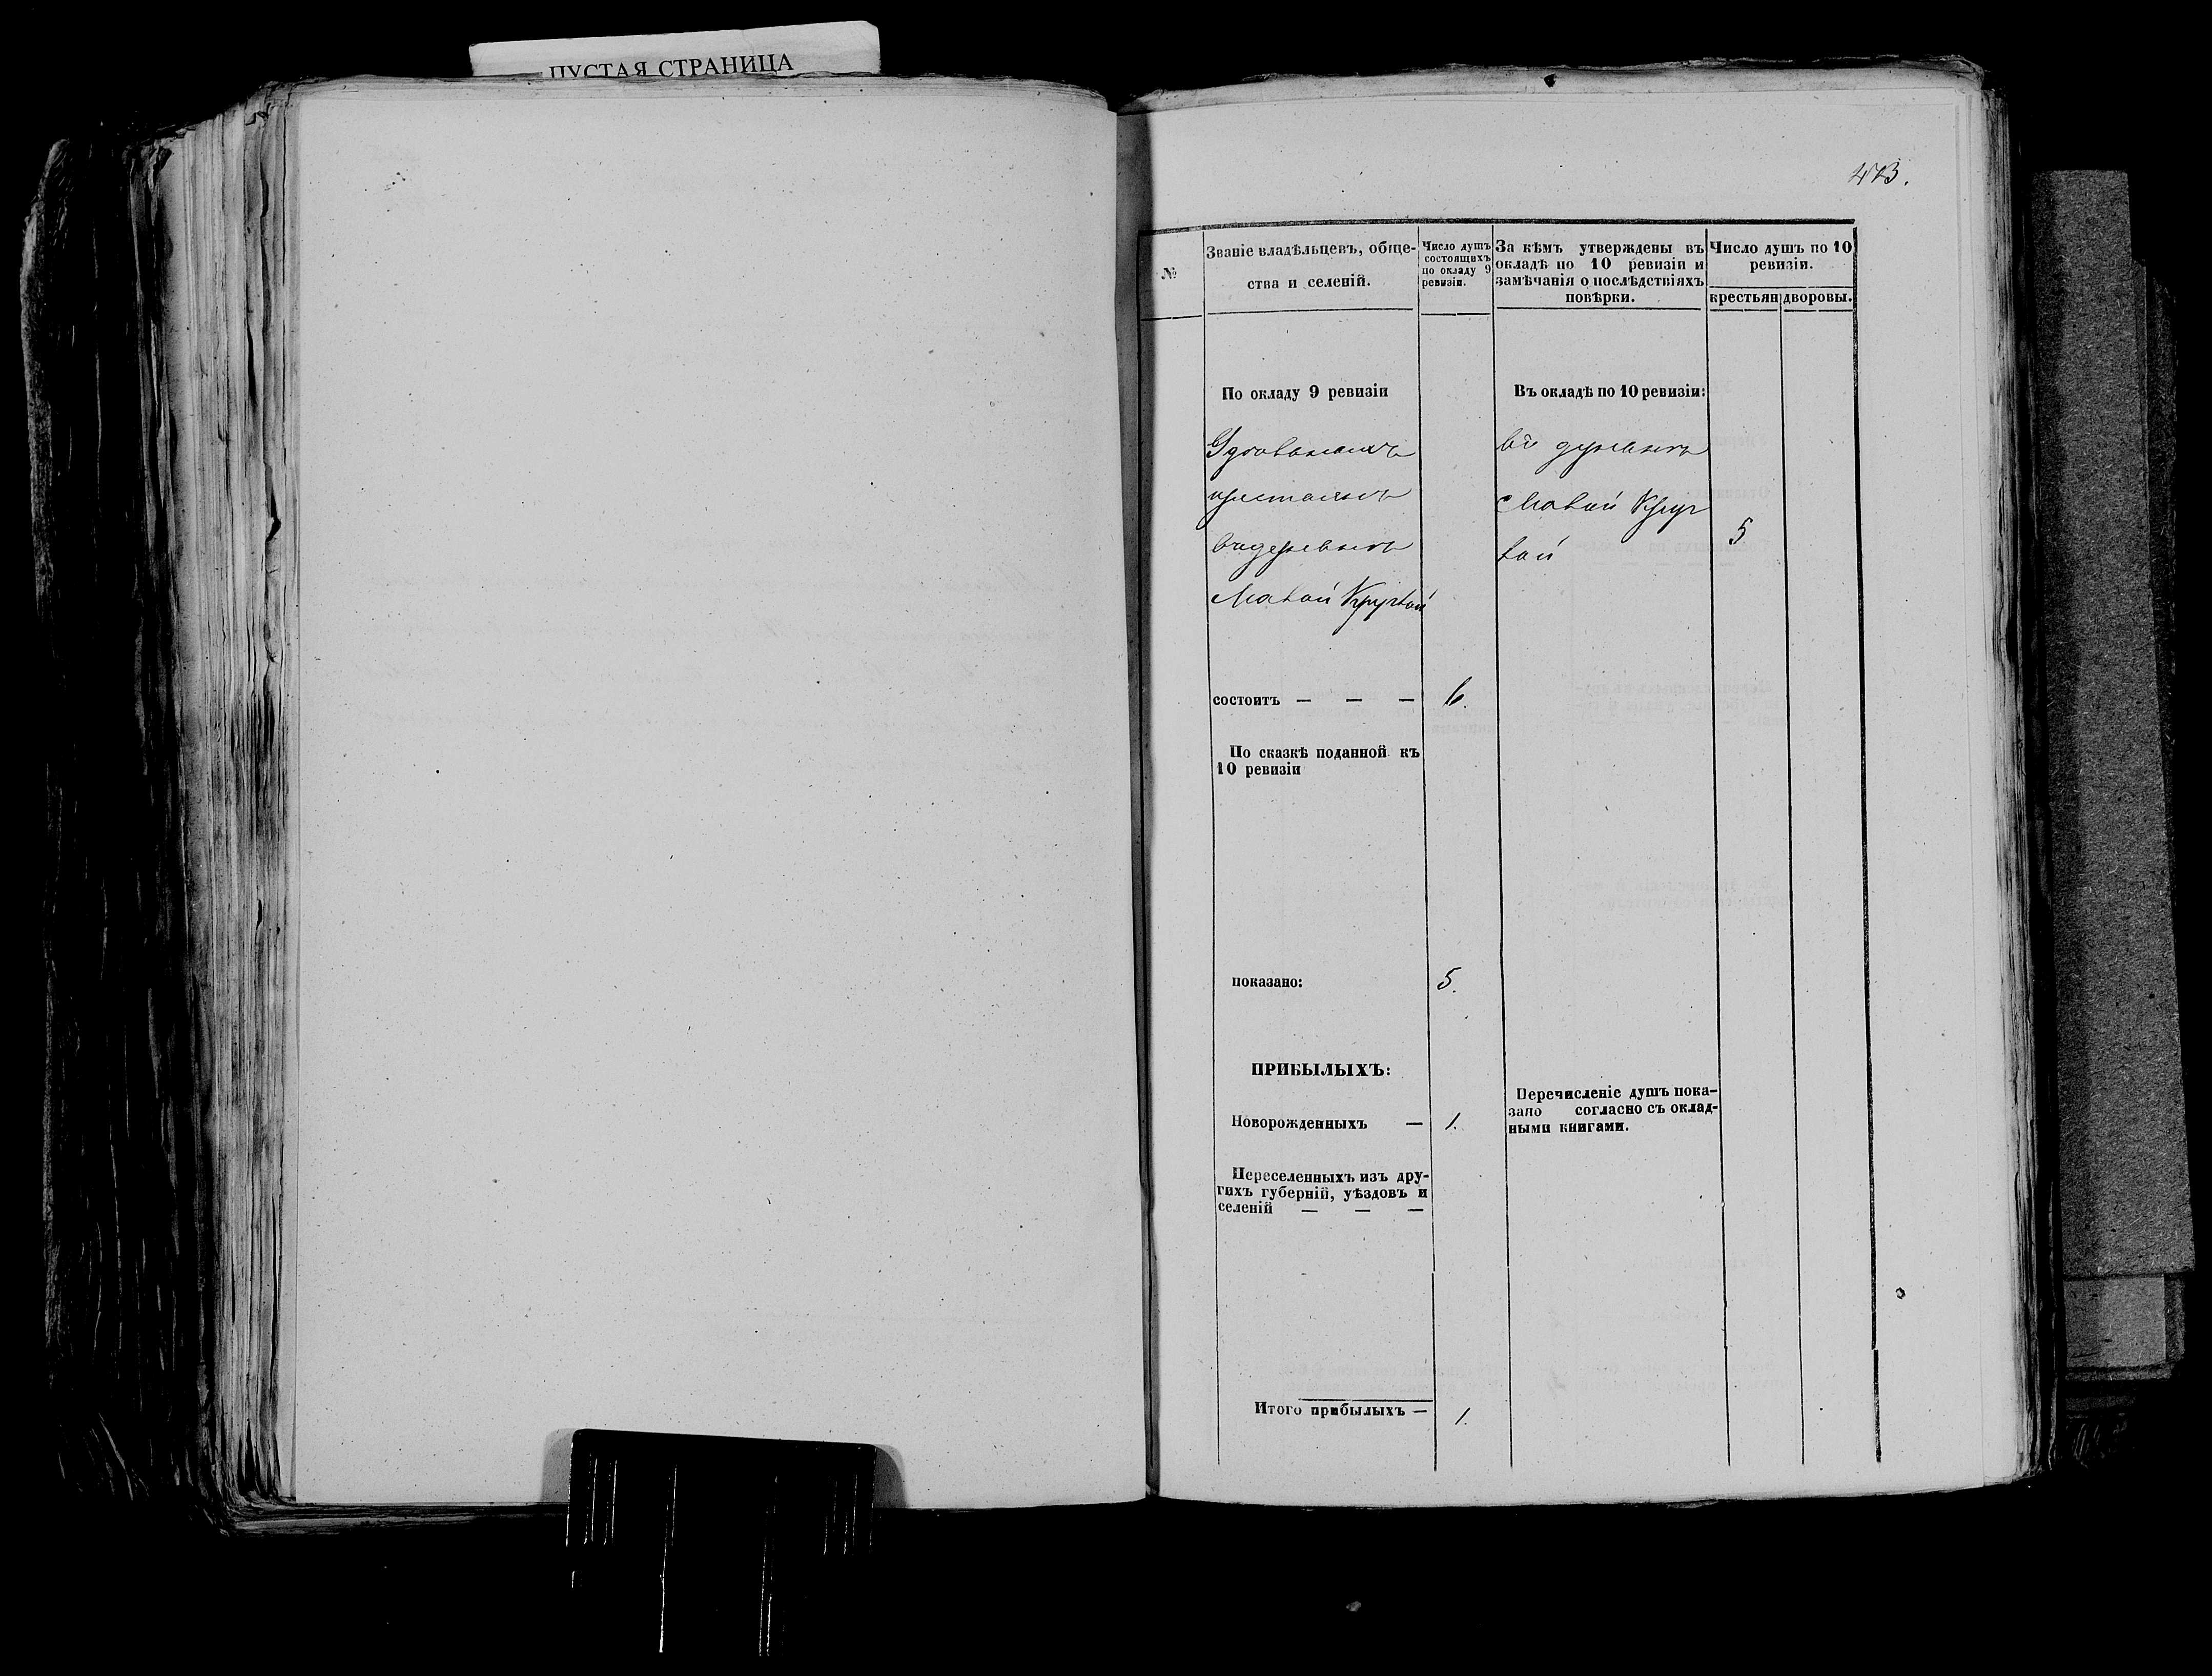 ПУСТАЯ СТРАНИЦА
473.
№
Званіе владѣльцевъ, обще-
ства и селеній.
Число душъ
состоящихъ
по окладу 9
ревизіи.
За кѣмъ утверждены въ
окладѣ по 10 ревизіи и
замѣчанія о послѣдствіяхъ
повѣрки.
Число душъ по 10
ревизіи.
крестьян
дворовы.
По окладу 9 ревизіи
крестьянъ
въ деревнѣ
состоитъ — — —
6.
По сказкѣ поданной къ
10 ревизіи
показано:
5.
ПРИБЫЛЫХЪ:
Новорожденныхъ —
1.
Переселенныхъ изъ дру-
гихъ губерній, уѣздовъ и
селеній — — —
Итого прибылыхъ —
1.
Въ окладѣ по 10 ревизіи:
въ деревнѣ
5
Перечисленіе душъ пока-
зано согласно съ оклад-
ными книгами.